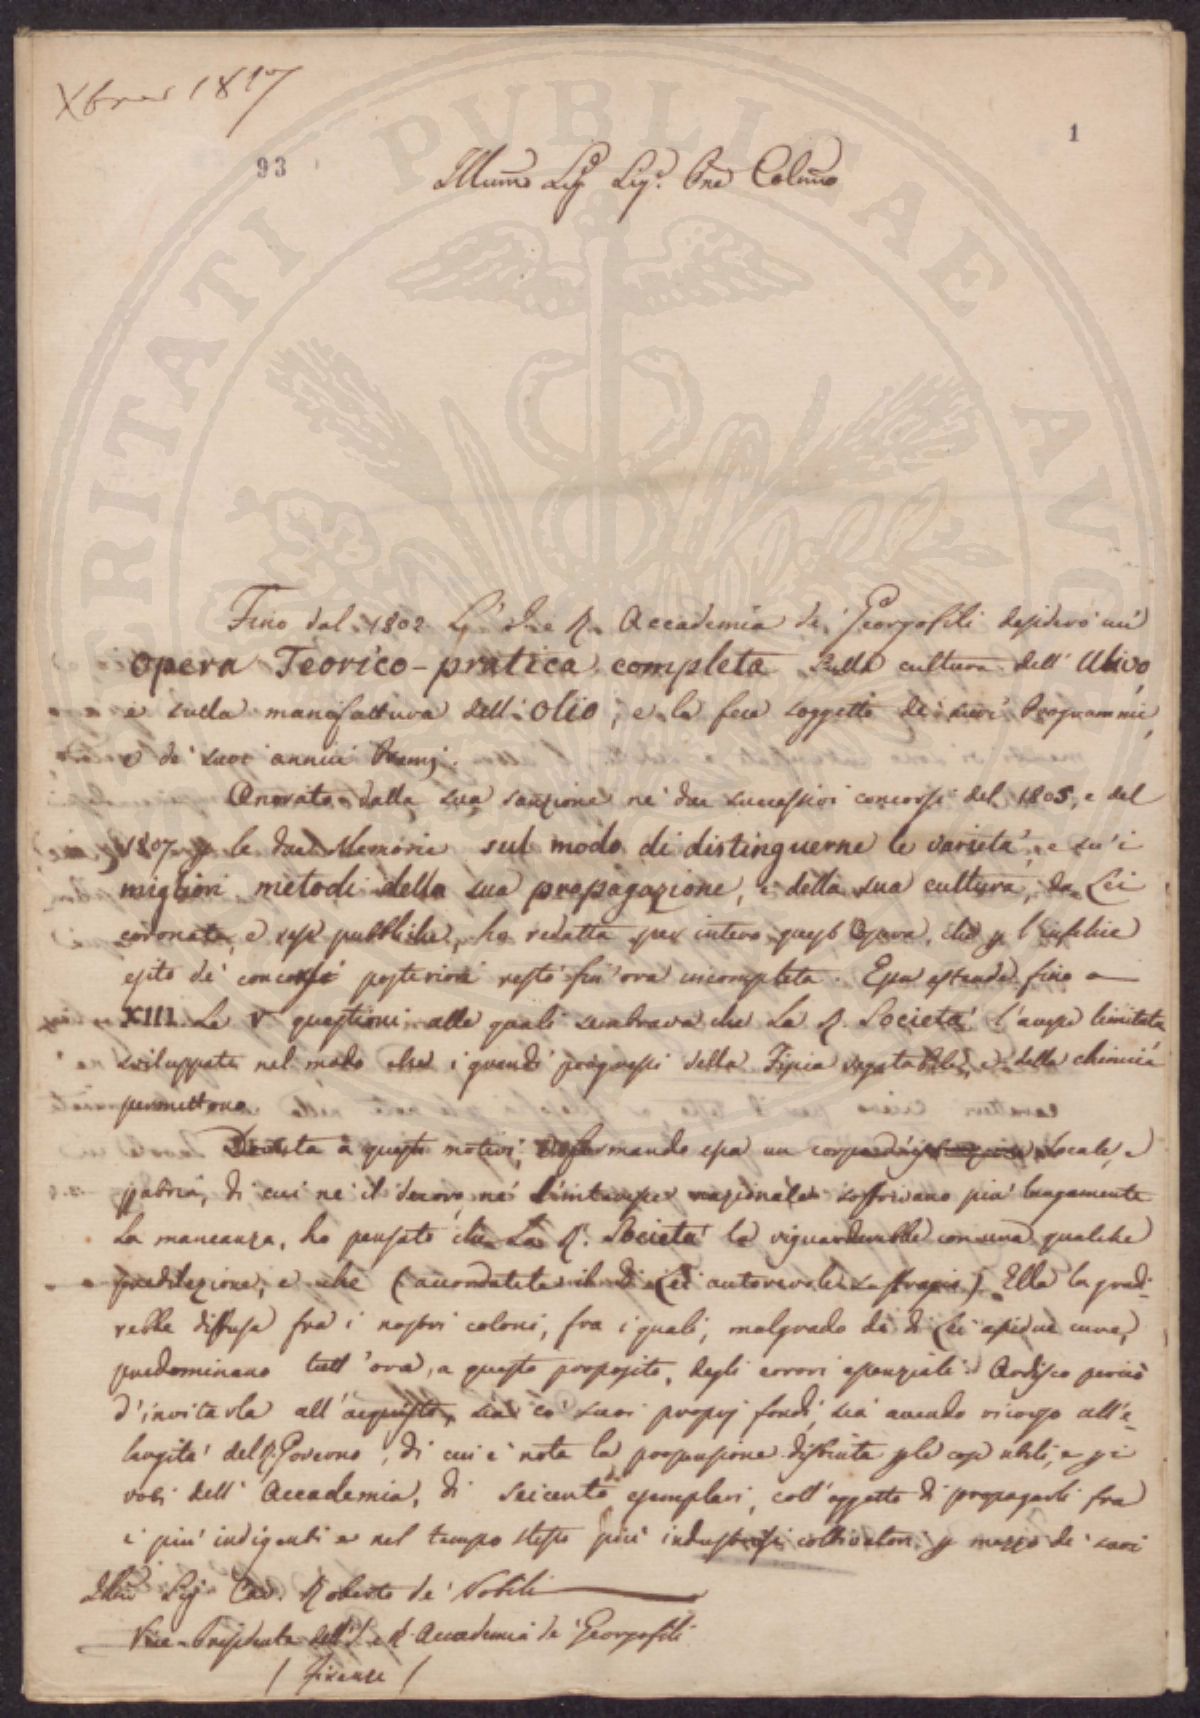 Xbre 1817
93
1
Illumo Sig Sig. Pne Colmo
Fino dal 1802 L'I. e R. Accademia de' Georgofili desiderò un'
opera Teorico-pratica completa sulla cultura dell' Ulivo,
e sulla manifattura dell' olio, e la fece soggetto de' suoi Programmi,
e de' suoi annui Premj.
Onorate dalla sua sanzione ne' due successivi concorsi del 1805, e del
1807 le due Memorie sul modo di distinguerne le varietà, e su' i
migliori metodi della sua propagazione, e della sua cultura, da Lei
coronate, e rese pubbliche, ho redatta per intero quest' Opera, che p l'infelice
esito de' concorsi posteriori restò fin' ora incompleta. Essa estende fino a
XIII le V questioni alle quali sembrava che la R. Società l'avesse limitata
sviluppate nel modo che i grandi progressi della Fisica vegetabile, e della chimica
permettono.
a questi motivi, formando essa un corpo locale, e
patrio, di cui nè il decoro, nè l'interesse nazionale soffrivano più lungamente
la mancanza, ho pensato che La R. Società la riguarderebbe con una qualche
predilezione, e che (accordatele il di Lei autorevole suffragio) Ella la gradi-
rebbe diffusa fra i nostri coloni, fra i quali, malgrado le di Lei assidue cure,
predominano tutt' ora, a questo proposito, degli errori essenziali. Ardisco perciò
d'invitarla all' acquisto, sia co' suoi proprj fondi, sia avendo ricorso all'a-
lungità del R. Governo, di cui è nota la propensione distinta p le cose utili, e p i
voti dell' Accademia, di seicento esemplari, coll' oggetto di propagarli fra
i più indigenti e nel tempo stesso più industriosi coltivatori p mezzo de' suoi
Illmo Sig Cav. Roberto de' Nobili
Vice-Presidente dell' I. e R. Accademia de' Georgofili
( Firenze )
VERITATI PUBLICAE